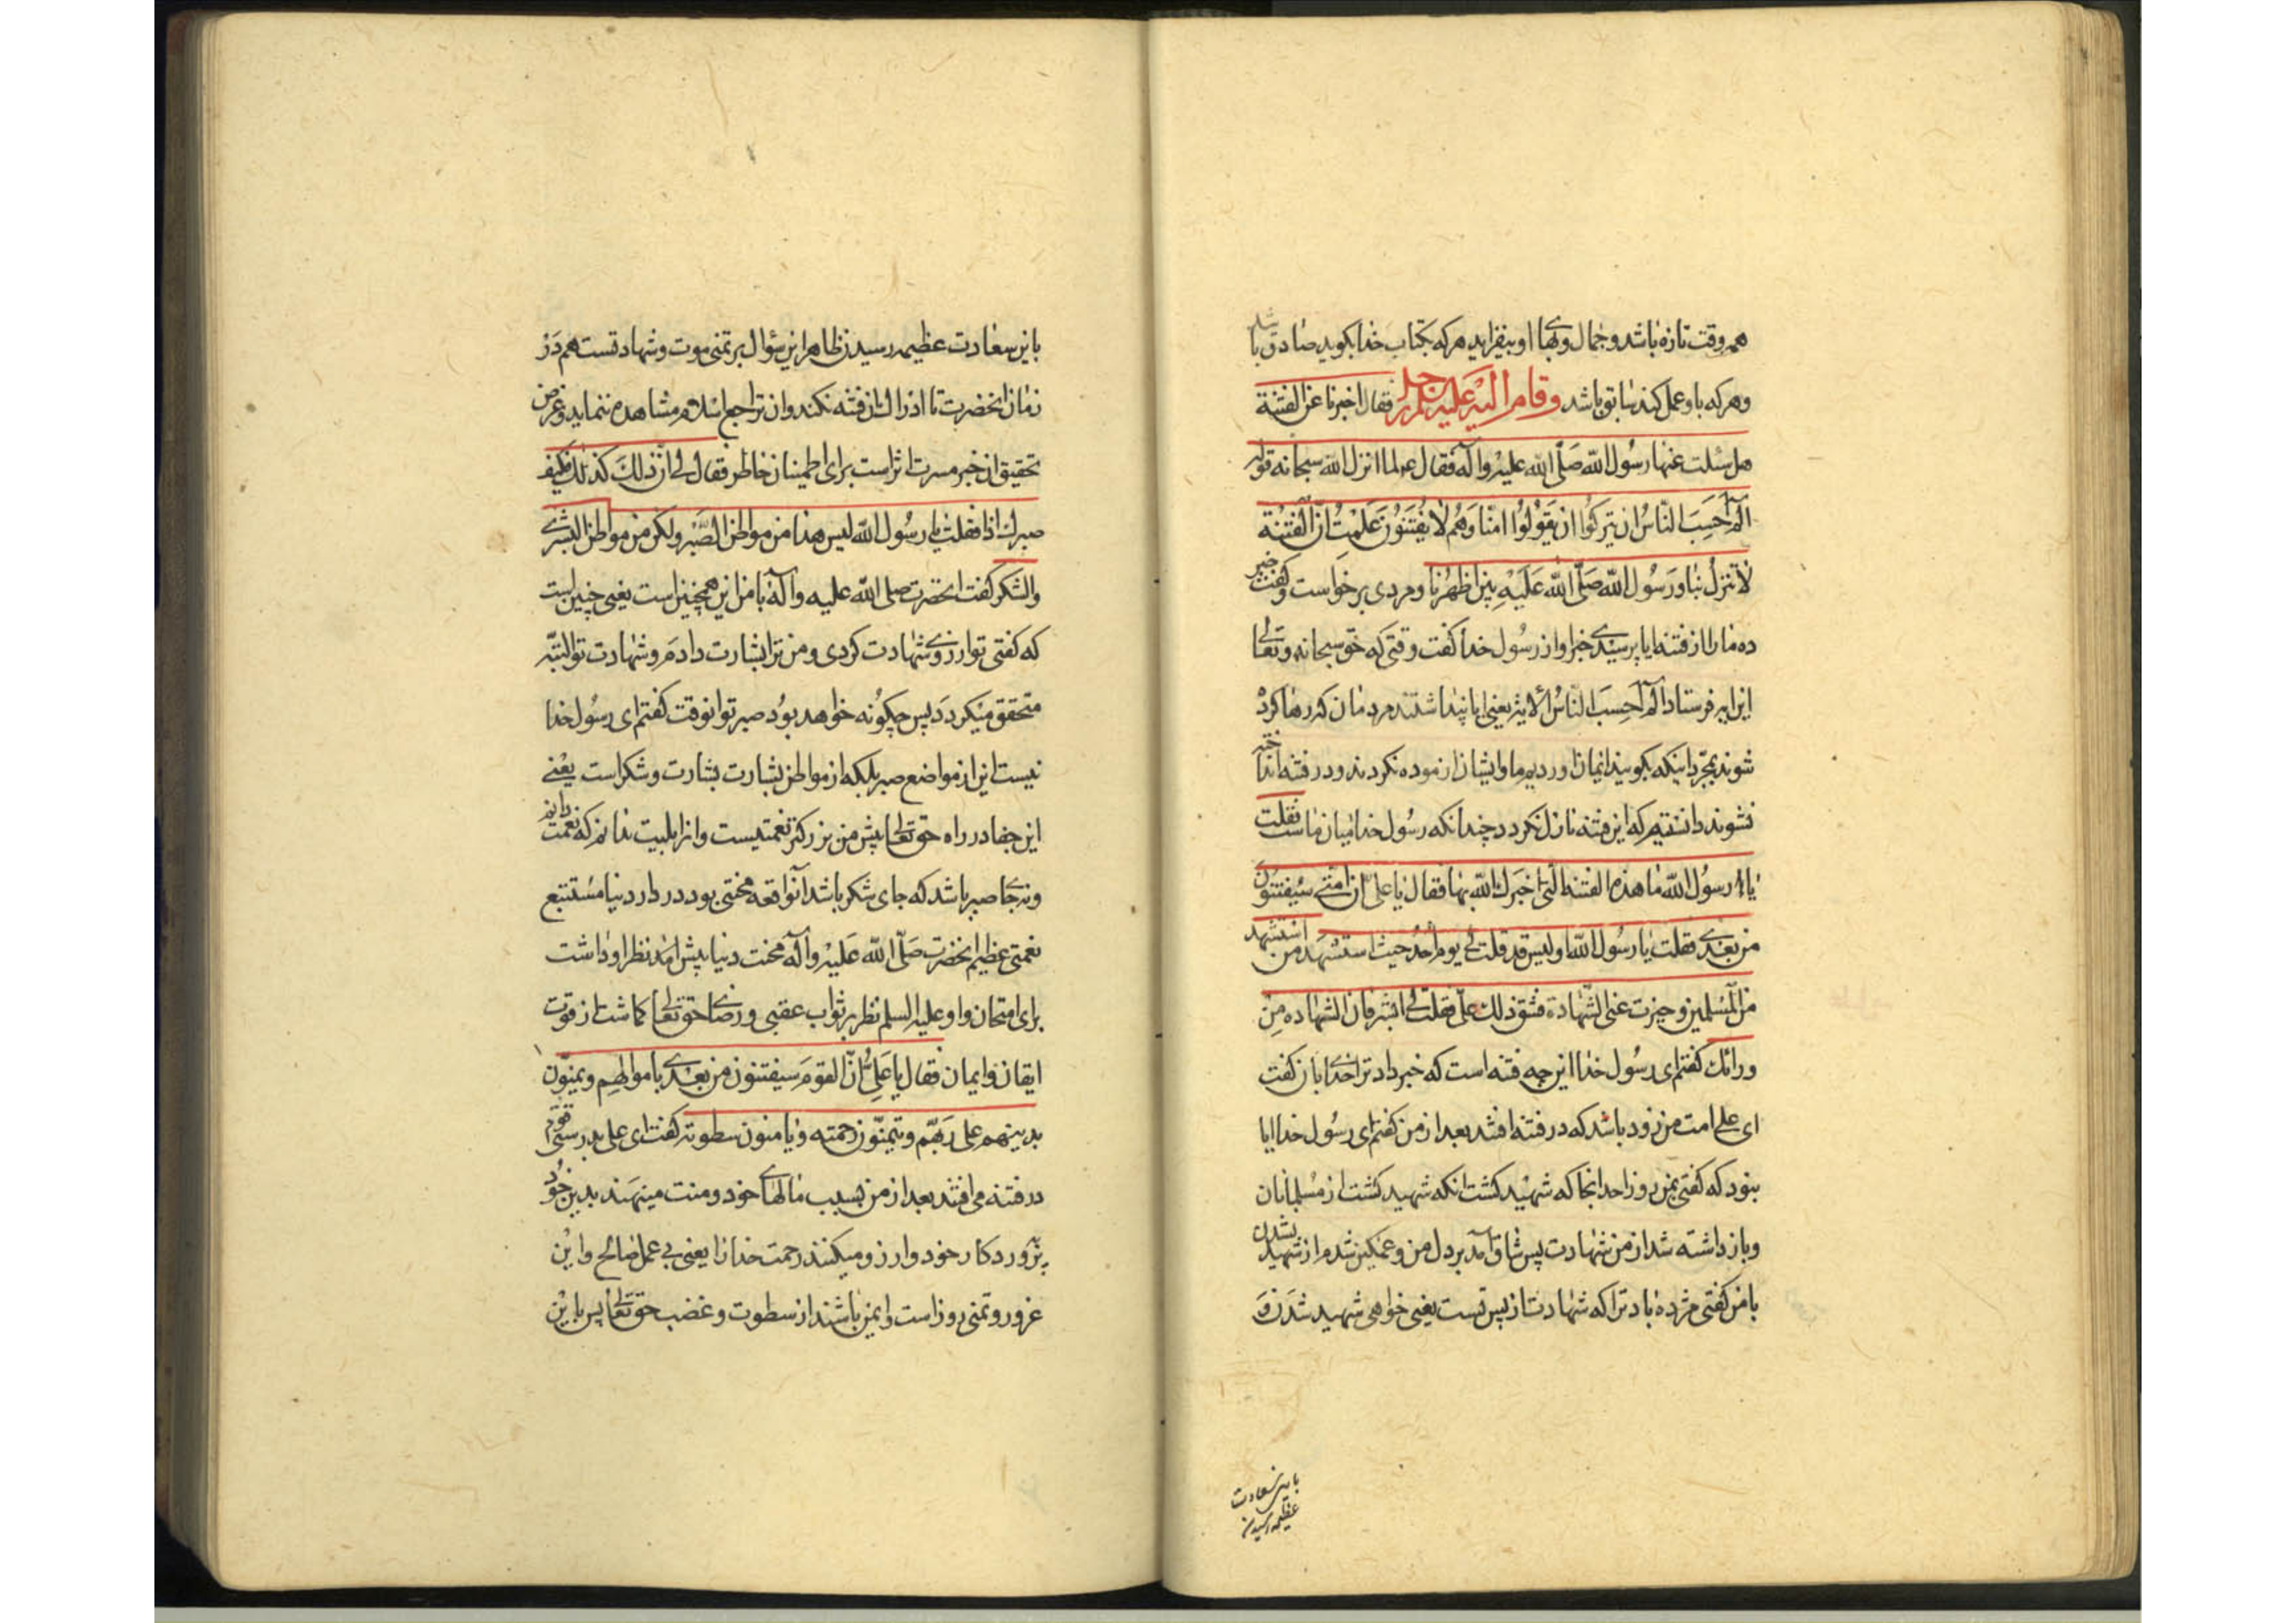 همه وقت تازه باشد و جمال و بهای او بیفزاید هر که بکتاب خدا بکوید صادق باشد
و هر که باو عمل کند سابق باشد وقام الیه علیه السلم رجل فقال اخبرنا عن الفتنة
هل سئلت عنها رسول الله صلّی الله علیه وآله فقال ع لما انزل الله سبحانه قوله
الم احسب الناس ان یترکوا ان یقولوا امنا وهم لا یفتنون علمت ان الفتنة
لا تنزل بنا ورسول الله صلّی الله علیه بین اظهرنا و مردی برخواست و کفت خبر
ده ما را از فتنه ایا پرسیدی خبر او از رسول خدا کفت وقتی که حق سبحانه وتعالی
این ایه فرستاد الم احسب الناس الایة یعنی ایا پنداشتند مردمان که رها کرده
شوند بمجرد اینکه بکویند ایمان اوردیم ما وایشان ازموده نکردند ودر فتنه انداخته
نشوند دانستم که این فتنه نازل نکردد چندانکه رسول خدا میان ماست فقلت
یا رسول الله ما هذه الفتنة الّتی اخبرک الله بها فقال یا علی ان امتی سیفتنون
من بعدی فقلت یا رسول الله اولیس قد قلت لی یوم احد حیث استشهد من استشهد
من المسلمین وحیزت عنی الشهادة فشق ذلک علیّ فقلت لی ابشر فان الشهاده من
ورائک کفتم ای رسول خدا این چه فتنه است که خبر داد ترا خدای بان کفت
ای علی امت من زود باشد که در فتنه افتند بعد از من کفتم ای رسول خدا ایا
نبود که کفتی بمن روز احد انجا که شهید کشت انکه شهید کشت از مسلمانان
وباز داشته شد از من شهادت پس شاق آمد بر دل من و غمکین شدم از شهید نشدن
با من کفتی مژده باد ترا که شهادت از پس تست یعنی خواهی شهید شد
باین سعادت
عظیمه رسیدن
باین سعادت عظیمه رسیدن ظاهرا این سؤال بر تمنی موت وشهادتست هم در
زمان انحضرت تا ادراک ان فتنه نکند وان تراجع اسلام مشاهده ننماید وغرض
تحقیق ان خبر مسرت اثر است برای اطمینان خاطر فقال لی ان ذلک کذلک فکیف
صبرک اذا فقلت یا رسول الله لیس هذا من مواطن الصبر ولکن من مواطن البشری
والشکر کفت انحضرت صلی الله علیه وآله با من این همچنین است یعنی چنین است
که کفتی تو ارزوی شهادت کردی و من ترا بشارت دادم وشهادت تو البته
متحقق میکردد پس چکونه خواهد بود صبر تو انوقت کفتم ای رسول خدا
نیست این از مواضع صبر بلکه از مواطن بشارت بشارت وشکر است یعنی
این جفا در راه حق تعالی پیش من بزرکتر نعمتیست وانرا بلیت ندانم که نعمت دانم
ونه جای صبر باشد که جای شکر باشد آنواقعه محنتی بود در دار دنیا مستتبع
نعمتی عظیم انحضرت صلّی الله علیه وآله محنت دنیا پیش امد نظر او داشت
برای امتحان واو علیه السلم نظر بر ثواب عقبی ورضای حق تعالی کماشت از قوت
ایقان وایمان فقال یا علیّ انّ القوم سیفتنون من بعدی باموالهم ویمنون
بدینهم علی ربّهم ویتمنّون رحمته ویامنون سطوته کفت ای علی بدرستی قوم
در فتنه می افتند بعد از من بسبب مالهای خود ومنت مینهند بدین خود
بر پروردکار خود وارزو میکنند رحمت خدا را یعنی بی عمل صالح واین
غرور وتمنی روز است وایمن باشند از سطوت و غضب حق تعالی پس باین